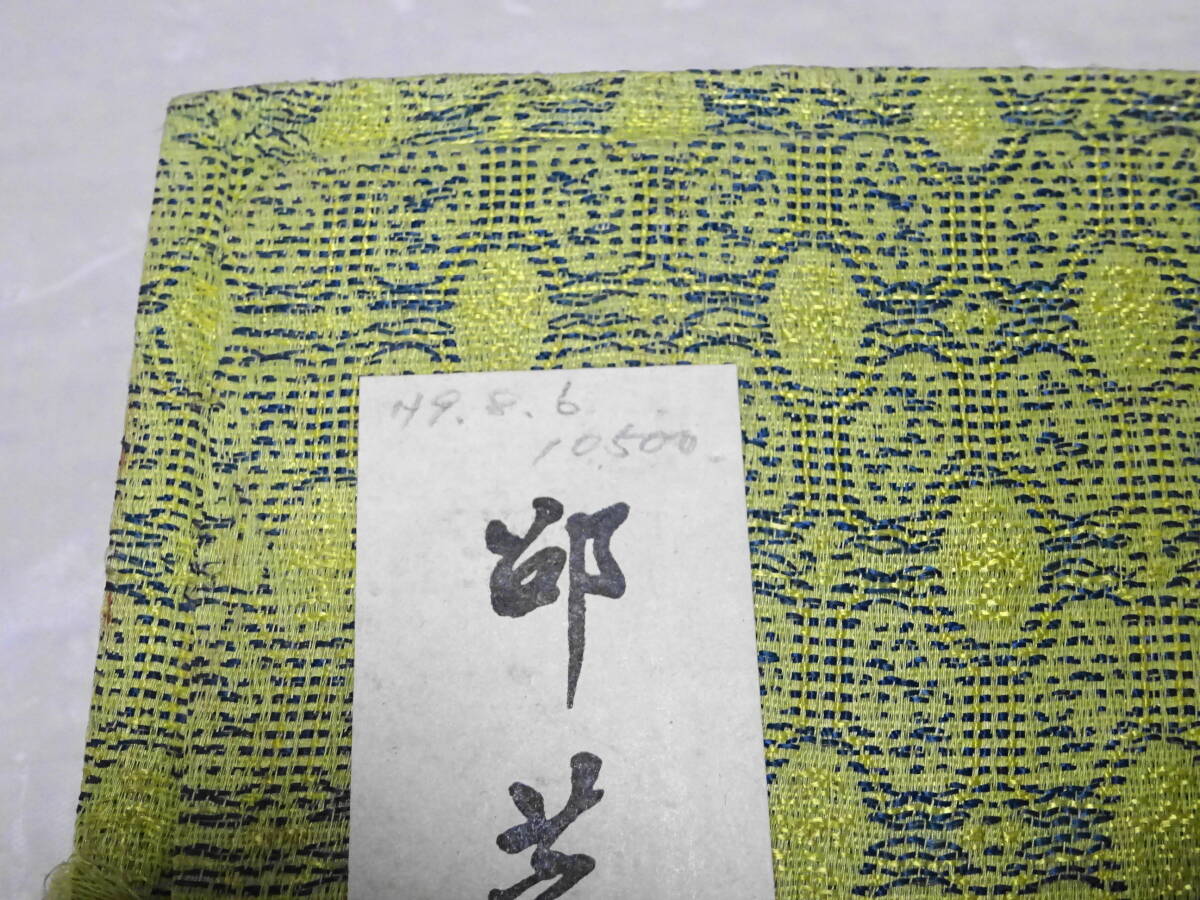 49.8.6
10500
邵